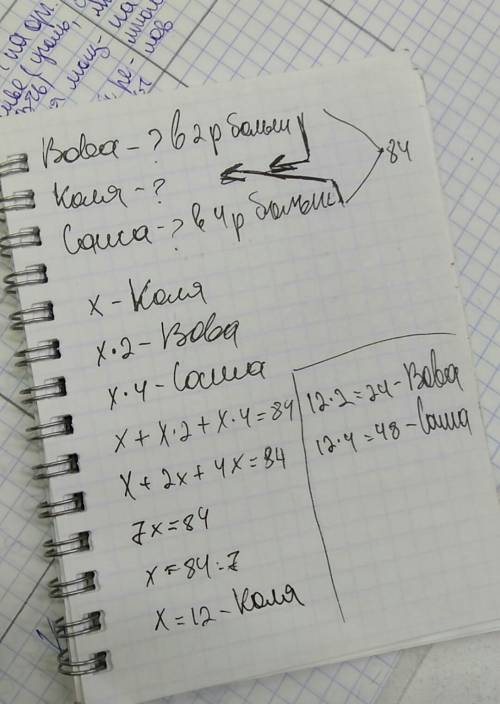 Вова - ? в 2 р больш
84
Коля - ?
Саша - ? в 4 р больш
x - Коля
x · 2 - Вова
x · 4 - Саша
x + x · 2 + x · 4 = 84
x + 2x + 4x = 84
7x = 84
x = 84 : 7
x = 12 - Коля
12 · 2 = 24 - Вова
12 · 4 = 48 - Саша